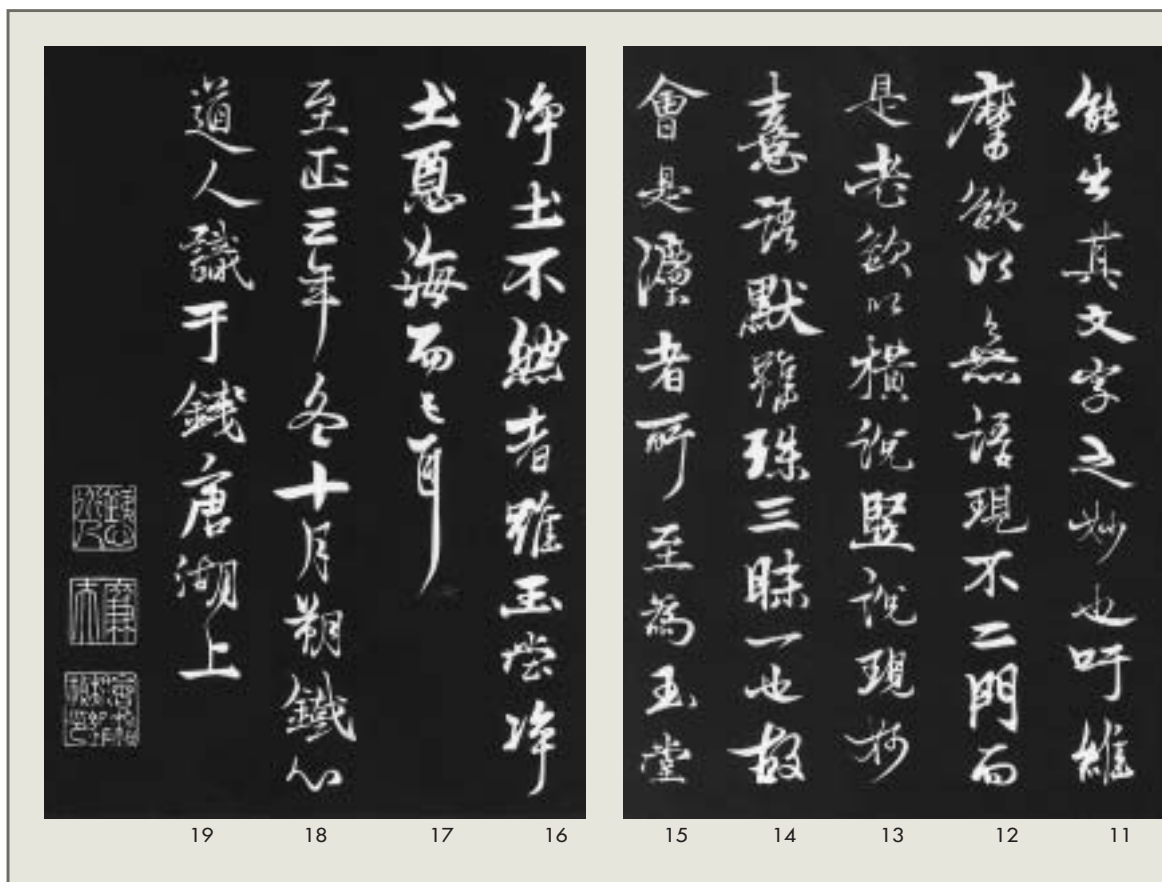 能出其文字之妙也吁維
摩欲以無語現不二門而
是老欲以橫說豎說現妙
憙語默雖殊三昧一也故
會是灋者所至為玉堂
淨土不然者雖玉堂淨
土惡海而已耳
至正三年冬十月朔鐵心
道人識于錢唐湖上
廉夫
19 18 17 16 15 14 13 12 11